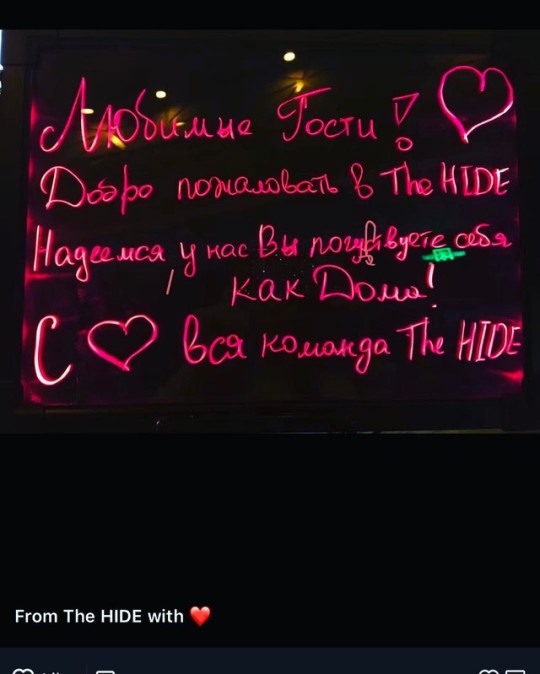 Любимые Гости! ♡
Добро пожаловать в The HIDE
Надеемся, у нас Вы почувствуете себя
как Дома!
С ♡ вся команда The HIDE
From The HIDE with ❤️